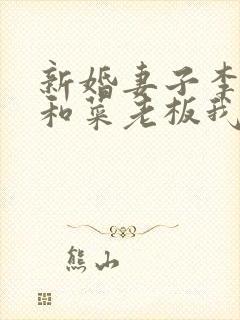 新婚妻子李
和菜老板我
熊山